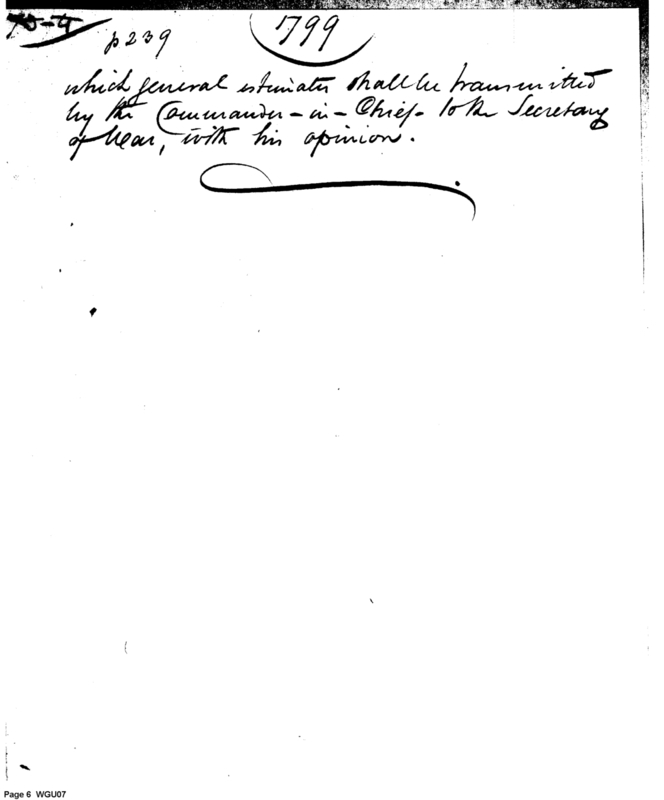 p 239
799
which general estimates shall be transmitted
by the Commander-in-Chief- to the Secretary
of War, with his opinion.
Page 6 WGU07